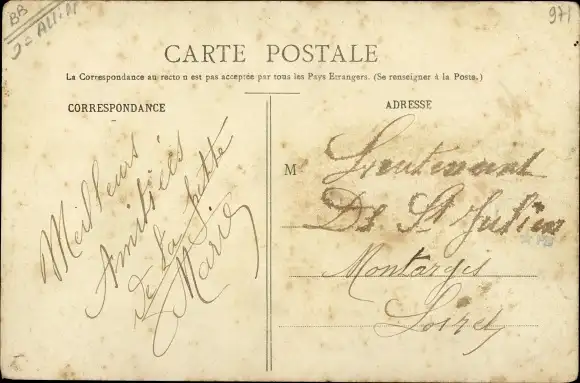 BB
971
CARTE POSTALE
La Correspondance au recto n est pas acceptée par tous les Pays Etrangers. (Se renseigner à la Poste.)
CORRESPONDANCE
Meilleurs
Amitiées
de la petite
Marie
ADRESSE
M Lieutenant
De St Julien
Montargis
Loiret